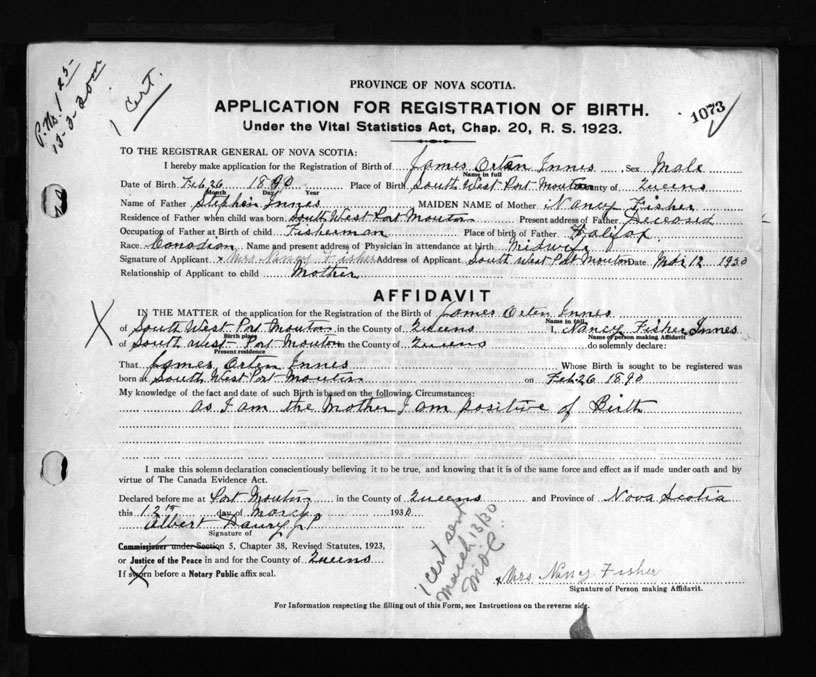 P. No. 1 25-
13-3-30
1 Cert.
PROVINCE OF NOVA SCOTIA.
APPLICATION FOR REGISTRATION OF BIRTH.
1073
Under the Vital Statistics Act, Chap. 20, R. S. 1923.
TO THE REGISTRAR GENERAL OF NOVA SCOTIA:
I hereby make application for the Registration of Birth of James Orten Innes Sex Male
Name in full
Date of Birth Feb 26 1890 Place of Birth South West Port Mouton County of Queens
Month Day Year
Name of Father Stephan Innes MAIDEN NAME of Mother Nancy Fisher
Residence of Father when child was born South West Port Mouton Present address of Father Deceased
Occupation of Father at Birth of child Fisherman Place of birth of Father Halifax
Race Canadian Name and present address of Physician in attendance at birth Midwife
Signature of Applicant x Mrs Nancy Fisher Address of Applicant South West Port Mouton Date Mar 12 1930
Relationship of Applicant to child Mother
AFFIDAVIT
IN THE MATTER of the application for the Registration of the Birth of James Orten Innes
Name in full
X of South West Port Mouton in the County of Queens I, Nancy Fisher Innes
Birth place Name of person making Affidavit
of South West Port Mouton in the County of Queens do solemnly declare:
Present residence
That James Orten Innes Whose Birth is sought to be registered was
born at South West Port Mouton on Feb 26 1890
My knowledge of the fact and date of such Birth is based on the following Circumstances:
as I am the Mother I am positive of Birth
I make this solemn declaration conscientiously believing it to be true, and knowing that it is of the same force and effect as if made under oath and by
virtue of The Canada Evidence Act.
Declared before me at Port Mouton in the County of Queens and Province of Nova Scotia
this 12th day of March 1930
Albert Daury J P
Signature of
Commissioner under Section 5, Chapter 38, Revised Statutes, 1923,
or Justice of the Peace in and for the County of Queens
If sworn before a Notary Public affix seal.
1 cert sent
March 13/30
x Mrs Nancy Fisher
Signature of Person making Affidavit.
For Information respecting the filling out of this Form, see Instructions on the reverse side.